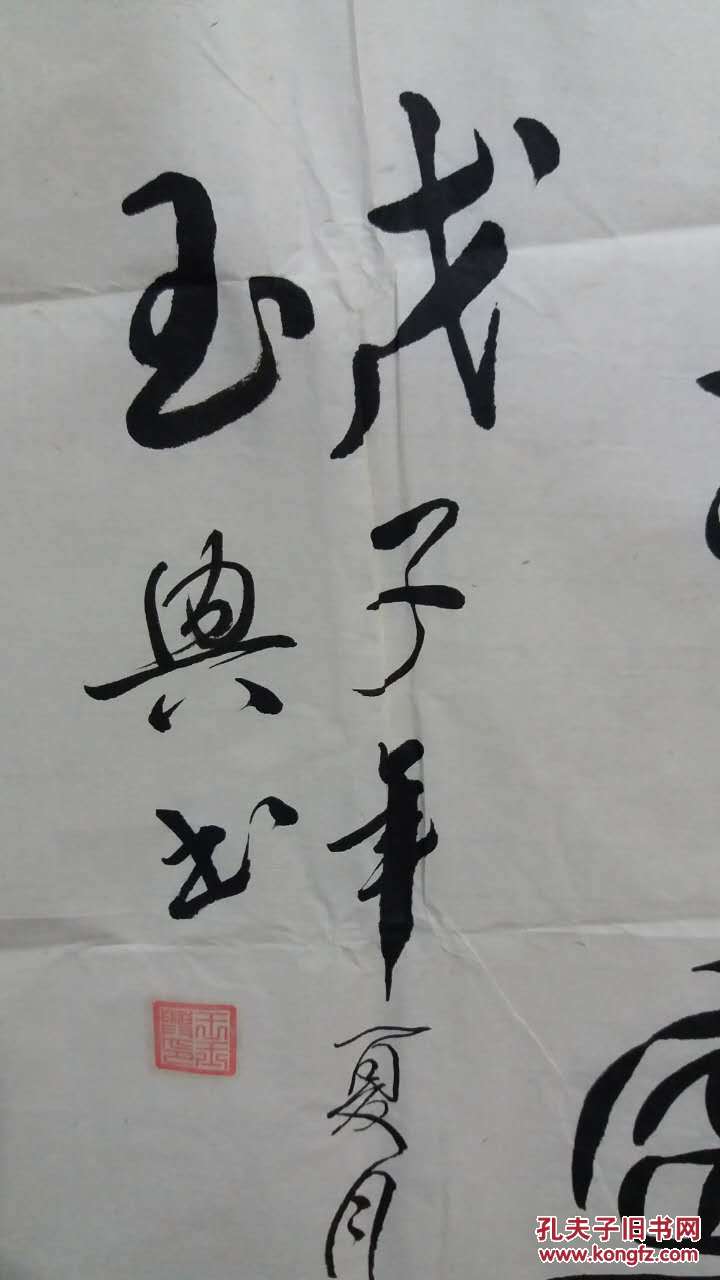 戊子年夏月
玉典书
孔夫子旧书网
www.kongfz.com